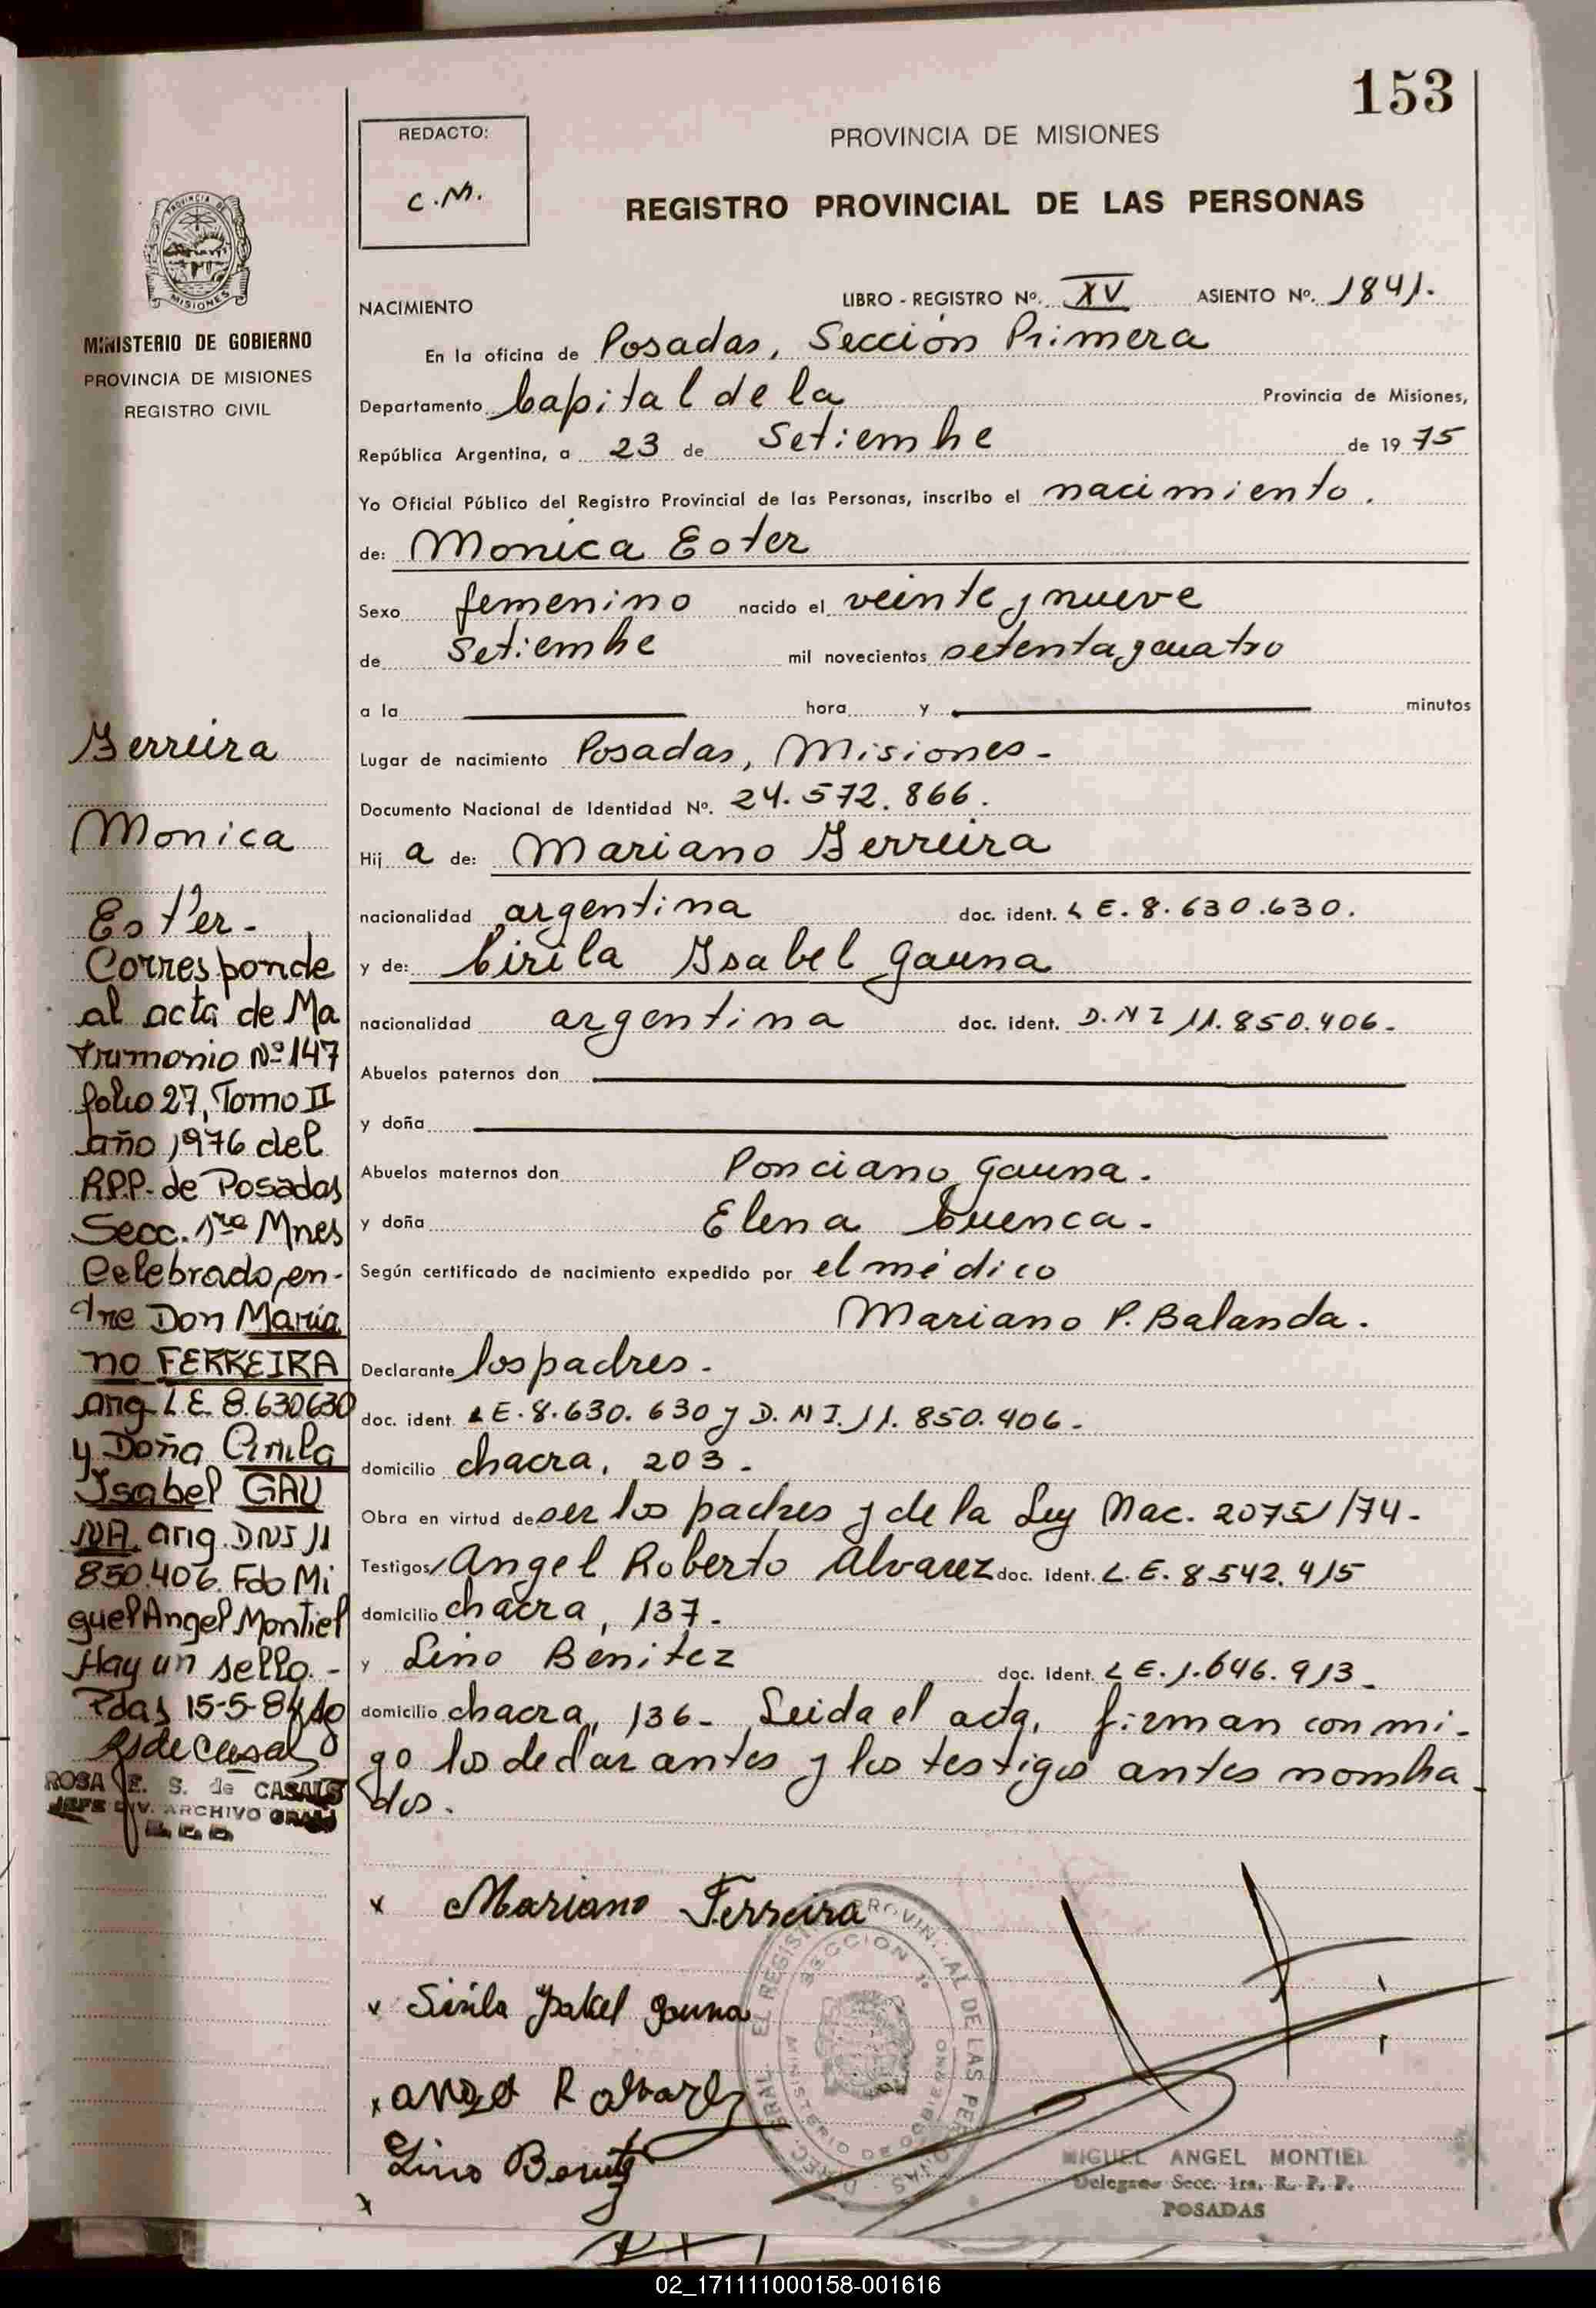 153
REDACTO:
C.M.
PROVINCIA DE MISIONES
REGISTRO PROVINCIAL DE LAS PERSONAS
PROVINCIA DE
MISIONES
MINISTERIO DE GOBIERNO
PROVINCIA DE MISIONES
REGISTRO CIVIL
NACIMIENTO LIBRO - REGISTRO Nº. XV ASIENTO Nº. 1841.
En la oficina de Posadas, Sección Primera
Departamento Capital de la Provincia de Misiones,
República Argentina, a 23 de Setiembre de 1975
Yo Oficial Público del Registro Provincial de las Personas, inscribo el nacimiento.
de: Monica Ester
Sexo femenino nacido el veinte y nueve
de Setiembre mil novecientos setenta y cuatro
a la hora y minutos
Lugar de nacimiento Posadas, Misiones -
Documento Nacional de Identidad Nº. 24.572.866.
Hij a de: Mariano Ferreira
nacionalidad argentina doc. ident. L E. 8.630.630.
y de: Cirila Isabel Gauna
nacionalidad argentina doc. ident. D.N I 11.850.406-
Abuelos paternos don
y doña
Abuelos maternos don Ponciano Gauna.
y doña Elena Cuenca.
Según certificado de nacimiento expedido por el médico
Mariano P. Balanda.
Declarante los padres.
doc. ident. L E. 8.630.630 y D.N I. 11.850.406-
domicilio chacra, 203-
Obra en virtud de ser los padres y de la Ley Nac. 20751/74-
Testigos Angel Roberto Alvarez doc. Ident. L. E. 8.542.415
domicilio chacra, 137-
y Lino Benitez doc. Ident. L E. 1.646.913-
domicilio chacra, 136- Leida el acta, firman conmi-
go los declarantes y los testigos antes nombra-
dos.
Ferreira
Monica
Ester-
Corresponde
al acta de Ma
trimonio Nº 147
folio 27, Tomo II
año 1976 del
R.P.P. de Posadas
Secc. 1ra Mnes
Celebrado en-
tre Don Maria
no FERREIRA
arg. L.E. 8.630630
y Doña Cirila
Isabel GAU
NA arg. DNI 11
850.406. Fdo Mi
guel Angel Montiel
Hay un sello.-
Pdas 15-5-84
ROSA E. S. de CASALS
JEFE DIV. ARCHIVO GRAL
x Mariano Ferreira
x Sirila Isabel Gauna
x Angel R Alvarez
Lino Benitez
x
DIREC. GRAL. EL REGISTRO PROVINCIAL DE LAS PERSONAS
SECCION 1ª
MINISTERIO DE GOBIERNO
MIGUEL ANGEL MONTIEL
Delegado Secc. 1ra. R. P. P.
POSADAS
02_171111000158-001616